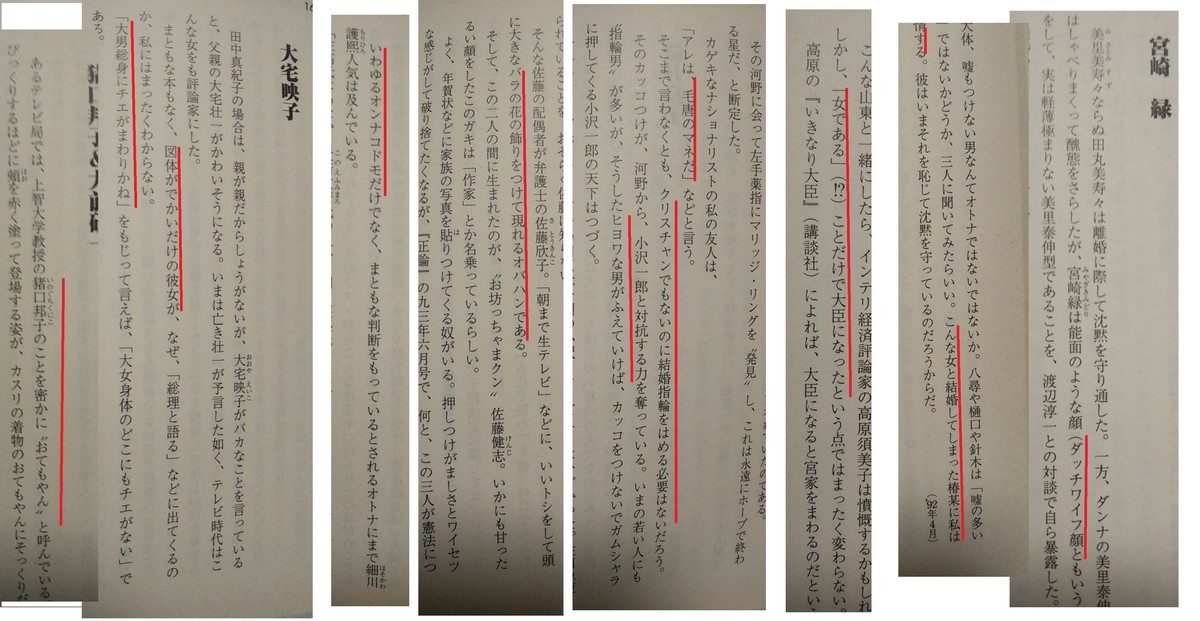 宮崎 緑
美里美寿々ならぬ田丸美寿々は離婚に際して沈黙を守り通した。一方、ダンナの美里泰伸
はしゃべりまくって醜態をさらしたが、宮崎緑は能面のような顔(ダッチワイフ顔ともいう
をして、実は軽薄極まりない美里泰伸型であることを、渡辺淳一との対談で自ら暴露した。
大体、嘘もつけない男なんてオトナではないではないか。八尋や樋口や針木は「嘘の多い
ではないかどうか、三人に聞いてみたらいい。こんな女と結婚してしまった椿某に私は
情する。彼はいまそれを恥じて沈黙を守っているのだろうからだ。
('92年4月)
こんな山東と一緒にしたら、インテリ経済評論家の高原須美子は憤慨するかもしれ
しかし、「女である」(!?)ことだけで大臣になったという点ではまったく変わらない。
高原の『いきなり大臣』(講談社)によれば、大臣になると宮家をまわるのだとい、
ていたのである。
その河野に会って左手薬指にマリッジ・リングを〝発見〟し、これは永遠にホープで終わ
る星だ、と断定した。
カゲキなナショナリストの私の友人は、
「アレは、毛唐のマネだ」などと言う。
そこまで言わなくとも、クリスチャンでもないのに結婚指輪をはめる必要はないだろう。
そのカッコつけが、河野から、小沢一郎と対抗する力を奪っている。いまの若い人にも
〝指輪男〟が多いが、そうしたヒヨワな男がふえていけば、カッコをつけないでガムシャラ
に押してくる小沢一郎の天下はつづく。
そんな佐藤の配偶者が弁護士の佐藤欣子。「朝まで生テレビ」などに、いいトシをして頭
に大きなバラの花の飾りをつけて現れるオバハンである。
そして、この二人の間に生まれたのが、〝お坊っちゃまクン〟佐藤健志。いかにも甘った
るい顔をしたこのガキは「作家」とか名乗っているらしい。
よく、年賀状などに家族の写真を貼りつけてくる奴がいる。押しつけがましさとワイセツ
な感じがして破り捨てたくなるが、『正論』の九三年六月号で、何と、この三人が憲法につ
いわゆるオンナコドモだけでなく、まともな判断をもっているとされるオトナにまで細川
護熙人気は及んでいる。
大宅映子
田中真紀子の場合は、親が親だからしょうがないが、大宅映子がバカなことを言っている
と、父親の大宅壮一がかわいそうになる。いまは亡き壮一が予言した如く、テレビ時代はこ
んな女をも評論家にした。
まともな本もなく、図体がでかいだけの彼女が、なぜ、「総理と語る」などに出てくるの
か、私にはまったくわからない。
「大男総身にチエがまわりかね」をもじって言えば、「大女身体のどこにもチエがない」で
ある。
あるテレビ局では、上智大学教授の猪口邦子のことを密かに〝おてもやん〟と呼んでいる
びっくりするほどに頬を赤く塗って登場する姿が、カスリの着物のおてもやんにそっくりだ